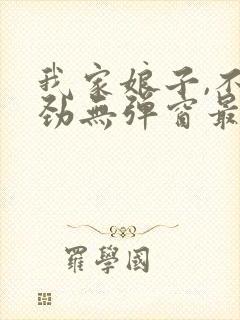 我家娘子,不
劲無弹窗最
羅學國